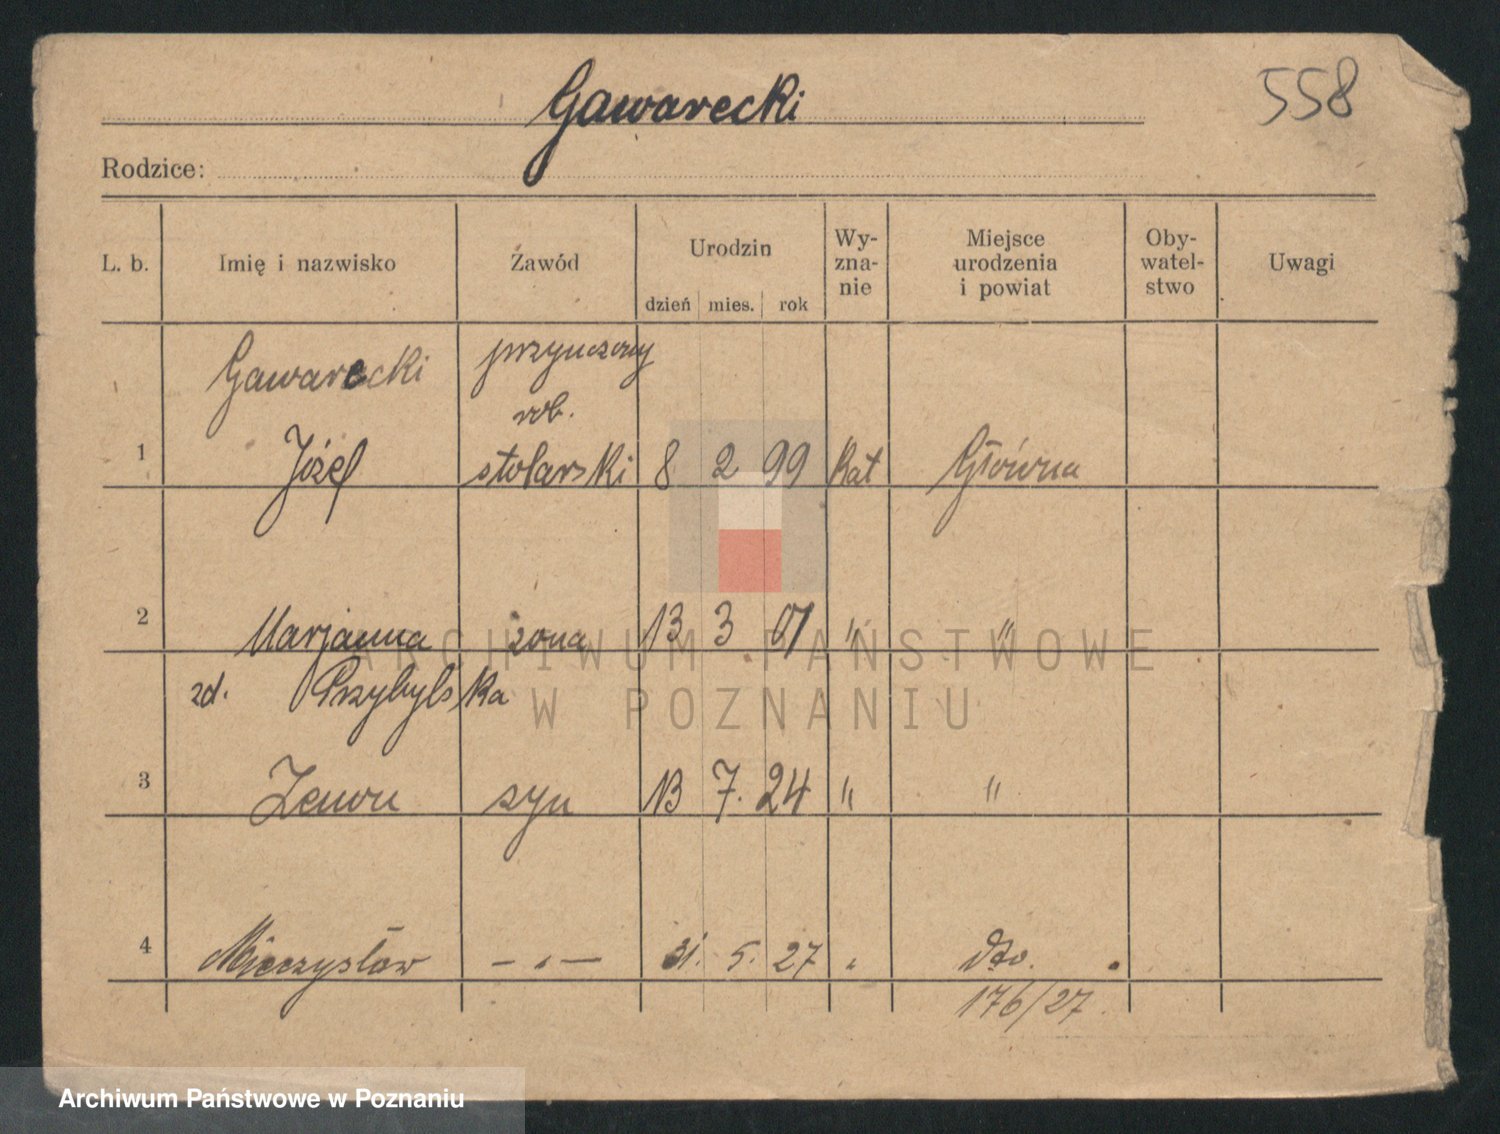 Gawarecki
558
Rodzice:
L. b. Imię i nazwisko Zawód Urodzin dzień mies. rok Wy-zna-nie Miejsce urodzenia i powiat Oby-watel-stwo Uwagi
Gawarecki przyuczony
rob.
1 Józef stolarski 8 2 99 Kat Główna
2 Marjanna żona 13 3 01 " "
zd. Przybylska
3 Zenon syn 13 7. 24 " "
4 Mieczysław – „ – 31. 5. 27 " dto.
176/27
ARCHIWUM PAŃSTWOWE
W POZNANIU
Archiwum Państwowe w Poznaniu